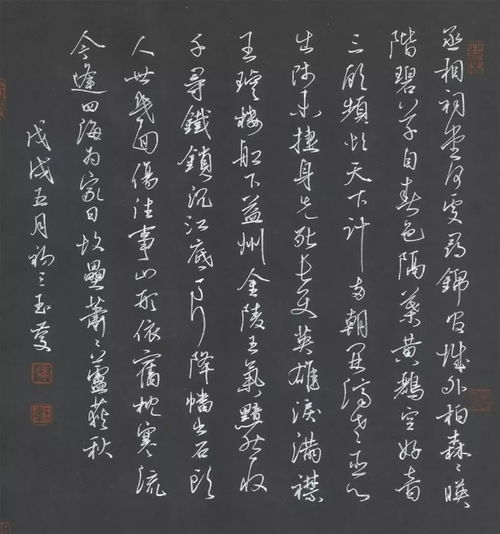 丞相祠堂何處尋錦官城外柏森〻映
階碧草自春色隔葉黃鸝空好音
三顧頻烦天下計兩朝開濟老臣心
出師未捷身先死長使英雄淚滿襟
王璿樓船下益州金陵王氣黯然收
千尋鐵鎖沉江底一片降幡出石頭
人世幾回傷往事山形依舊枕寒流
今逢四海為家日故壘蕭〻蘆荻秋
戊戌五月初三玉